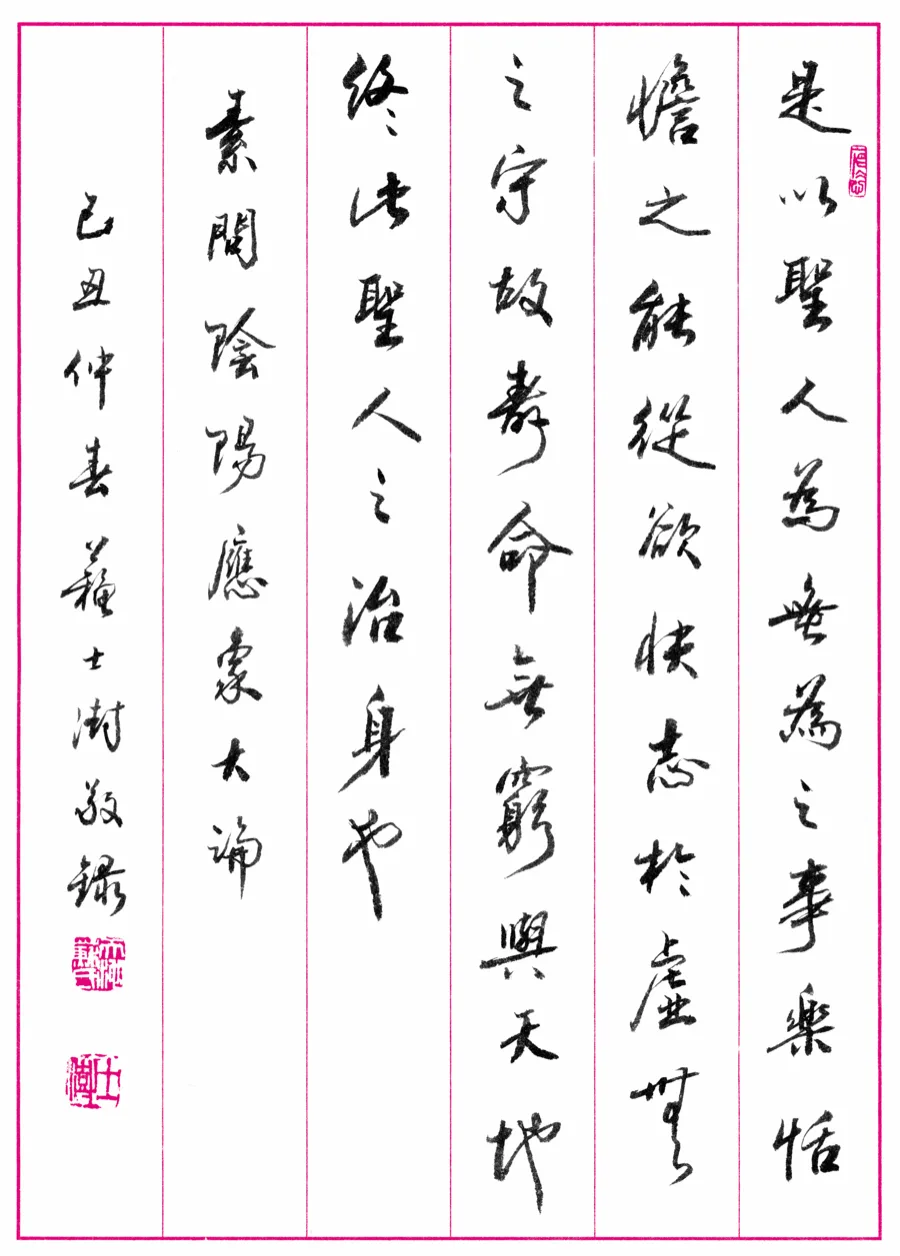 是以聖人為無為之事樂恬
憺之能從欲快志於虛無
之守故壽命無窮與天地
終此聖人之治身也
素問陰陽應象大論
己丑仲春蘇士澍敬錄